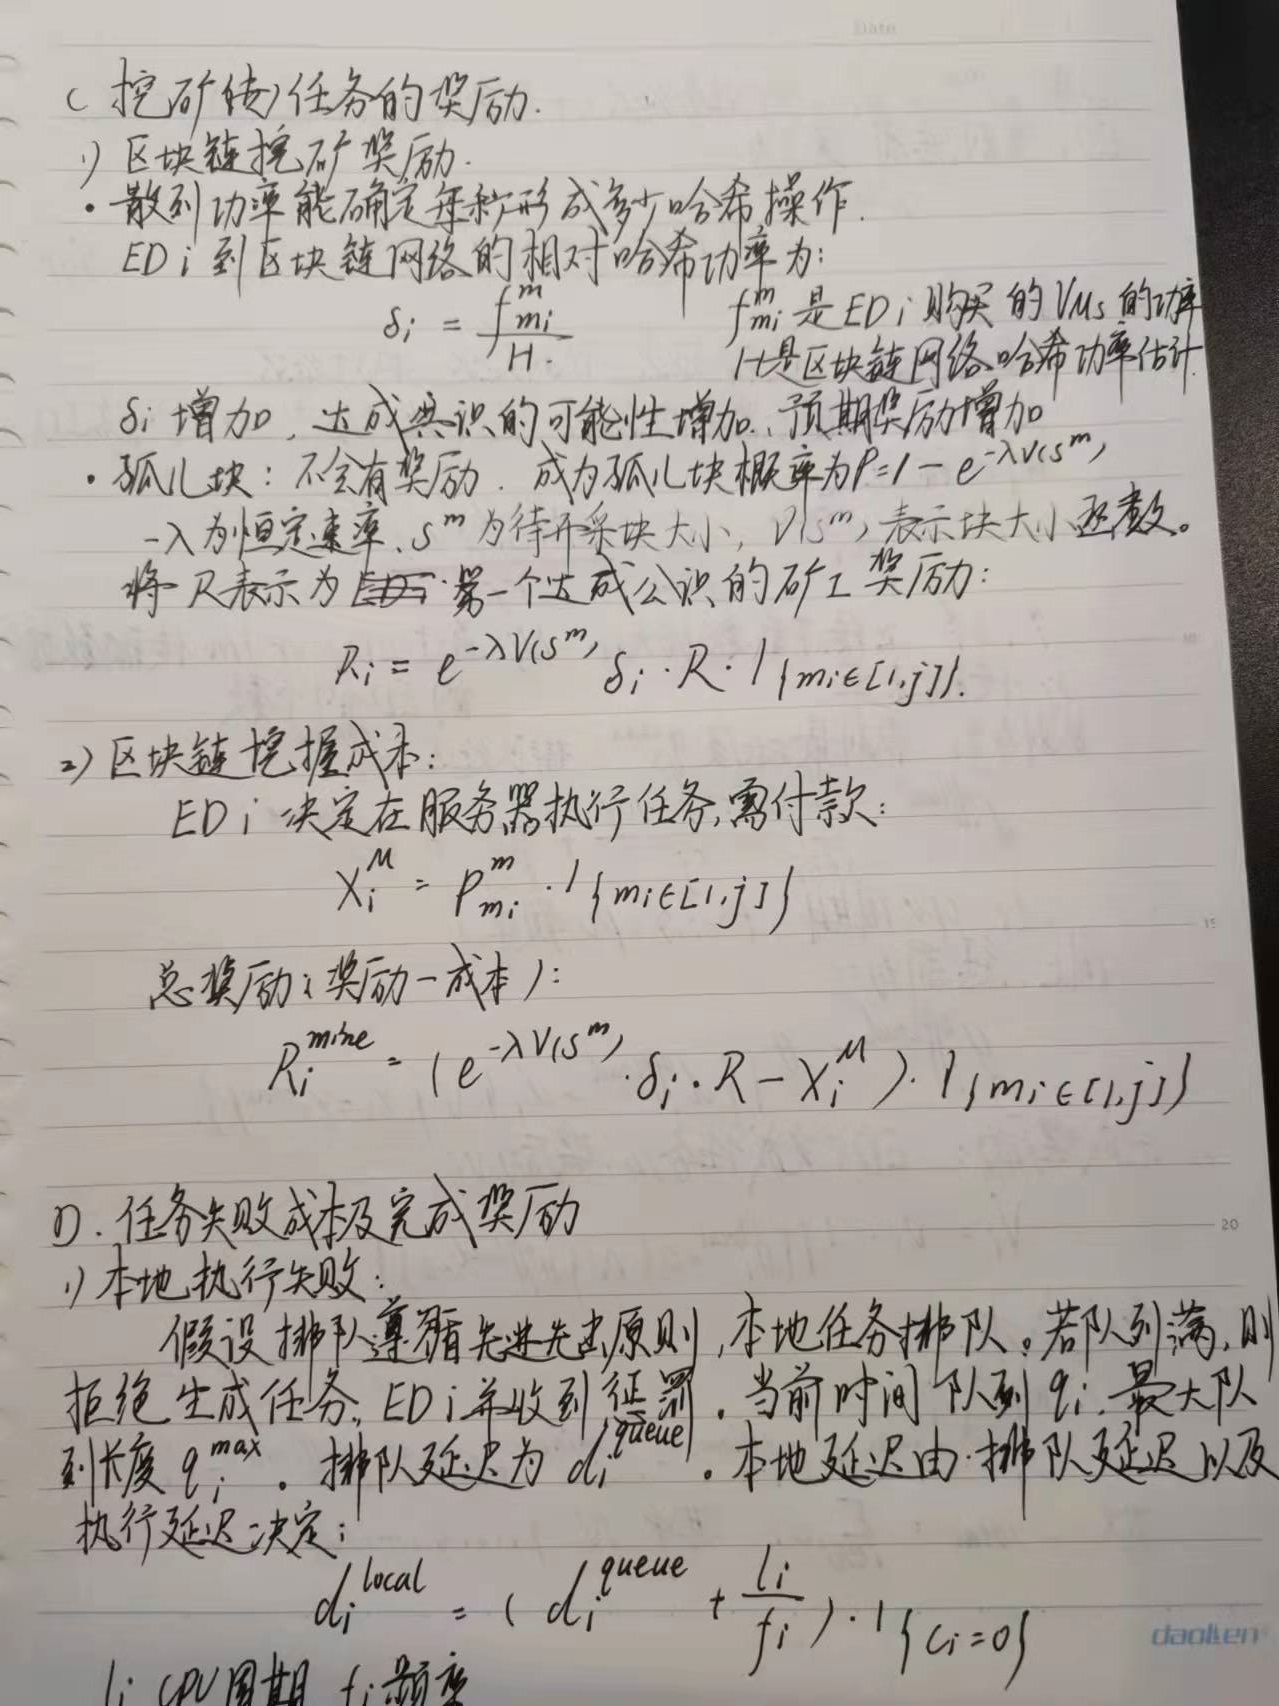 C 挖矿(块)任务的奖励.
1) 区块链挖矿奖励.
• 散列功率能确定每秒形成多少哈希操作.
EDi到区块链网络的相对哈希功率为:
δi = f^m_mi / H. f^m_mi 是EDi购买的VMs的功率
H是区块链网络哈希功率估计.
δi增加, 达成共识的可能性增加, 预期奖励增加
• 孤儿块: 不会有奖励. 成为孤儿块概率为P=1-e^-λV(S^m)
-λ为恒定速率, S^m为待开采块大小, V(S^m)表示块大小函数。
将R表示为第一个达成公识的矿工奖励:
Ri = e^-λV(S^m) δi·R·1{mi∈[1,j]}.
2) 区块链挖握成本:
EDi决定在服务器执行任务,需付款:
X^M_i = P^m_mi·1{mi∈[1,j]}
总奖励(奖励-成本):
R^mine_i = (e^-λV(S^m)·δi·R-X^M_i)·1{mi∈[1,j]}
D. 任务失败成本及完成奖励
1) 本地执行失败:
假设排队遵循先进先出原则,本地任务排队。若队列满,则
拒绝生成任务, EDi并收到征罪. 当前时间队列qi, 最大队
列长度q^max_i. 排队延迟为d^queue_i. 本地延迟由排队延迟以及
执行延迟决定:
d^local_i = (d^queue_i + li/fi)·1{ci=0}
li CPU周期 fi频率
daolien
15
20
Date